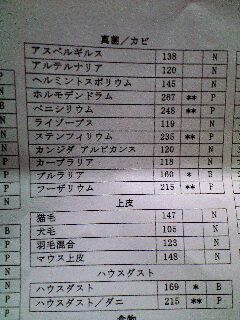 真菌/カビ
アスペルギルス 138 N
アルテルナリア 120 N
ヘルミントスポリウム 145 N
ホルモデンドラム 267 ** P
ペニシリウム 248 ** P
ライゾープス 119 N
ステンフィリウム 235 ** P
カンジダ アルビカンス 120 N
カーブラリア 118 N
プルラリア 160 * B
フーザリウム 215 ** P
上皮
猫毛 147 N
犬毛 105 N
羽毛混合 123 N
マウス上皮 148 N
ハウスダスト
ハウスダスト 169 * B
ハウスダスト/ダニ 215 ** P
食物